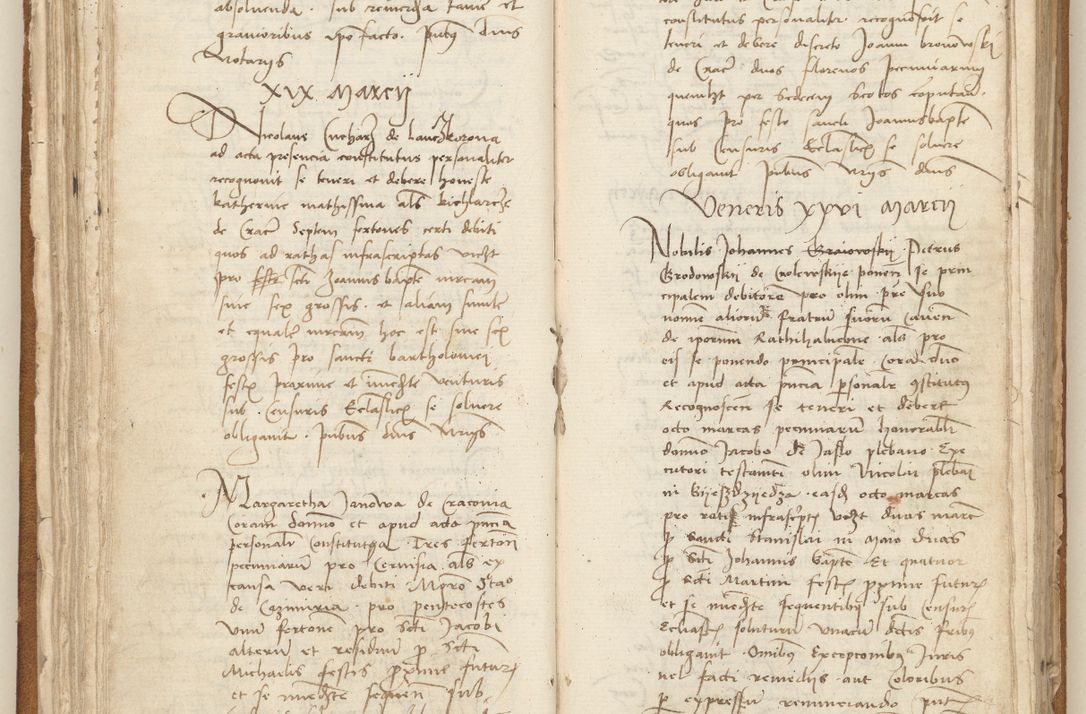 absolvenda. sub remerza tame et
gravioribus ipo facto. pntbus dnis
Notarijs
XIX Marcij
Nicolaus Cucharz de Lanczkorona
ad acta presencia constitutus personaliter
recognovit se teneri et debere honeste
Katherine mathissina als kichlarcze
de Crac septem fertones certi debiti
quos ad rathas infrascriptas vicht
pro scti Joannis bapte mream
sine sex grossis. et aliam similr
et equale mream hoc est sine sex
grossis pro sancti bartholomei
festis proxime et imediate venturis
sub censuris Ecclasticis se solvere
obligavit. pntibus dnis Nrijs
Margaretha Janowa de Cracovia
Coram domino et apud acta pncia
personalr Constituta Tres ferton
pecuniarum pro Cervisia als ex
causa veri debiti Mgro Stao
de Cazimiria pro pentecostes
unu fertone pro Scti Jacobi
alteru et residuu p Scti
Michaelis festis proxime futuris
et se imediate sequen sub
constitutus personaliter recognovit se
teneri et debere discreto Joanni bronowskij
de Crac duos florenos pecuniarum
quemlibet per sedecem scotos coputan.
quos pro festo sancti Joannisbapte
sub Censuris Ecclasticis se solvere
obligavit pntibus Nrijs dnis
Veneris XXVI Marcij
Nobilis Johannes Graiowskij Petrus
Grodowskij de Crolewskije ponen se prin
cipalem debitore pro olim pre suo
nomine alioru fratru suoru caven
de iporum Rathihabicione als pro
eis se ponendo principale Cora dno
et apud acta pncia personalr constitutus
Recognoscen se teneri et debere
octo marcas pecuniarum honorabli
domino Jacobo de Jaslo plebano Exe
cutori testamti olim Nicolai plebani
in Byeszdzyedza easd octo marcas
pro ratis infrascriptis vidlt duas marc
p Sancti Stanislai in maio duas
p Scti Johannis bapte Et quatuor
p Scti Martini festis proxime futuris
et se imediate sequentibus sub Censuris
Ecclasticis soluturu unacum dictis fribus
obligavit Omnibus Excepcionibus Juris
vel facti remedijs aut coloribus
p expressum renunciando pnt